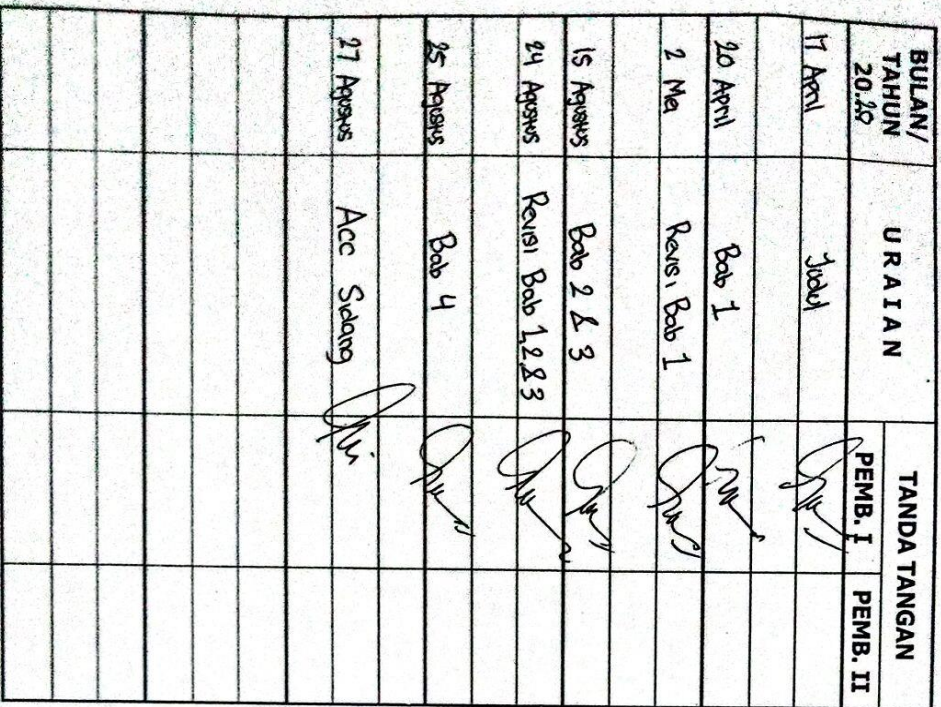 BULAN/ TAHUN 20.20 URAIAN TANDA TANGAN
PEMB. I PEMB. II
17 April Judul
20 April Bab 1
2 Mei Revisi Bab 1
15 Agustus Bab 2 & 3
24 Agustus Revisi Bab 1,2&3
25 Agustus Bab 4
27 Agustus Acc Sidang